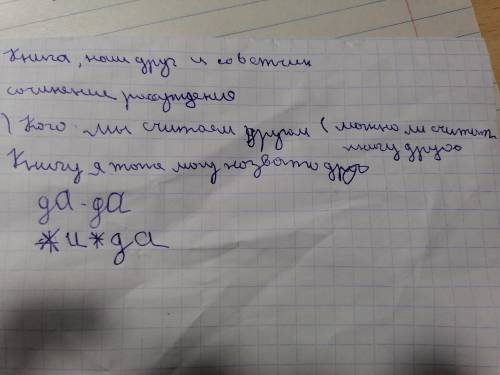 Книга, наш друг и советчик
сочинение рассуждения
) Кого мы считаем другом ( можно ли считать
книгу другою
Книгу я тоже могу назвать друг
да - да
*и*да